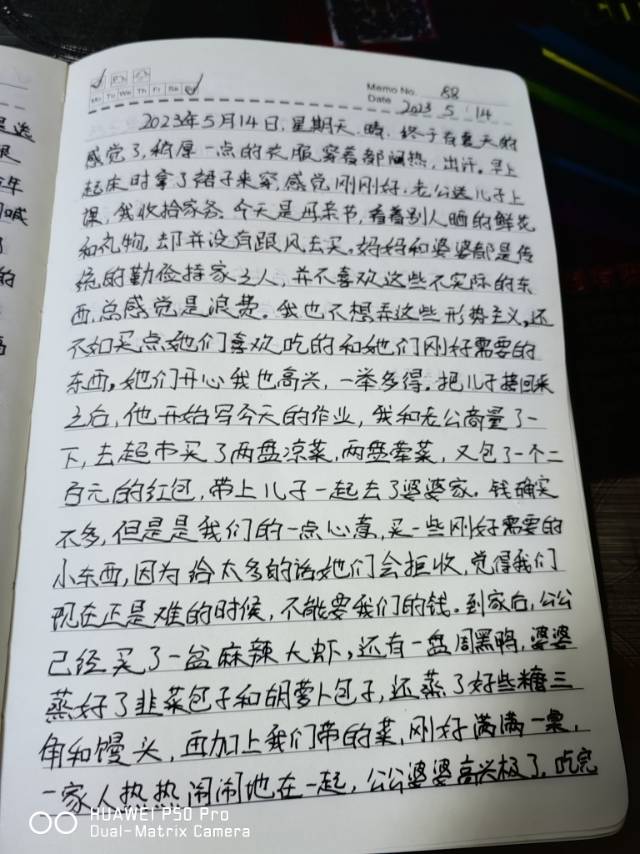 Mo Tu We Th Fr Sa Su
Memo No. 88
Date 2023 5 14
2023年5月14日,星期天,晴,终于有夏天的
感觉了,稍厚一点的衣服穿着都闷热,出汗。早上
起床时拿了裙子来穿,感觉刚刚好,老公送儿子上
课,我收拾家务。今天是母亲节,看着别人晒的鲜花
和礼物,却并没有跟风去买。妈妈和婆婆都是传
统的勤俭持家之人,并不喜欢这些不实际的东
西,总感觉是浪费。我也不想弄这些形势主义,还
不如买点她们喜欢吃的和她们刚好需要的
东西,她们开心我也高兴,一举多得。把儿子接回来
之后,他开始写今天的作业,我和老公商量了一
下,去超市买了两盘凉菜,两盘荤菜,又包了一个二
百元的红包,带上儿子一起去了婆婆家。钱确实
不多,但是是我们的一点心意,买一些刚好需要的
小东西,因为给太多的话她们会拒收,觉得我们
现在正是难的时候,不能要我们的钱。到家后,公公
已经买了一盆麻辣大虾,还有一盘周黑鸭,婆婆
蒸好了韭菜包子和胡萝卜包子,还蒸了好些糖三
角和馒头,再加上我们带的菜,刚好满满一桌,
一家人热热闹闹地在一起,公公婆婆高兴极了。吃完
HUAWEI P50 Pro
Dual-Matrix Camera